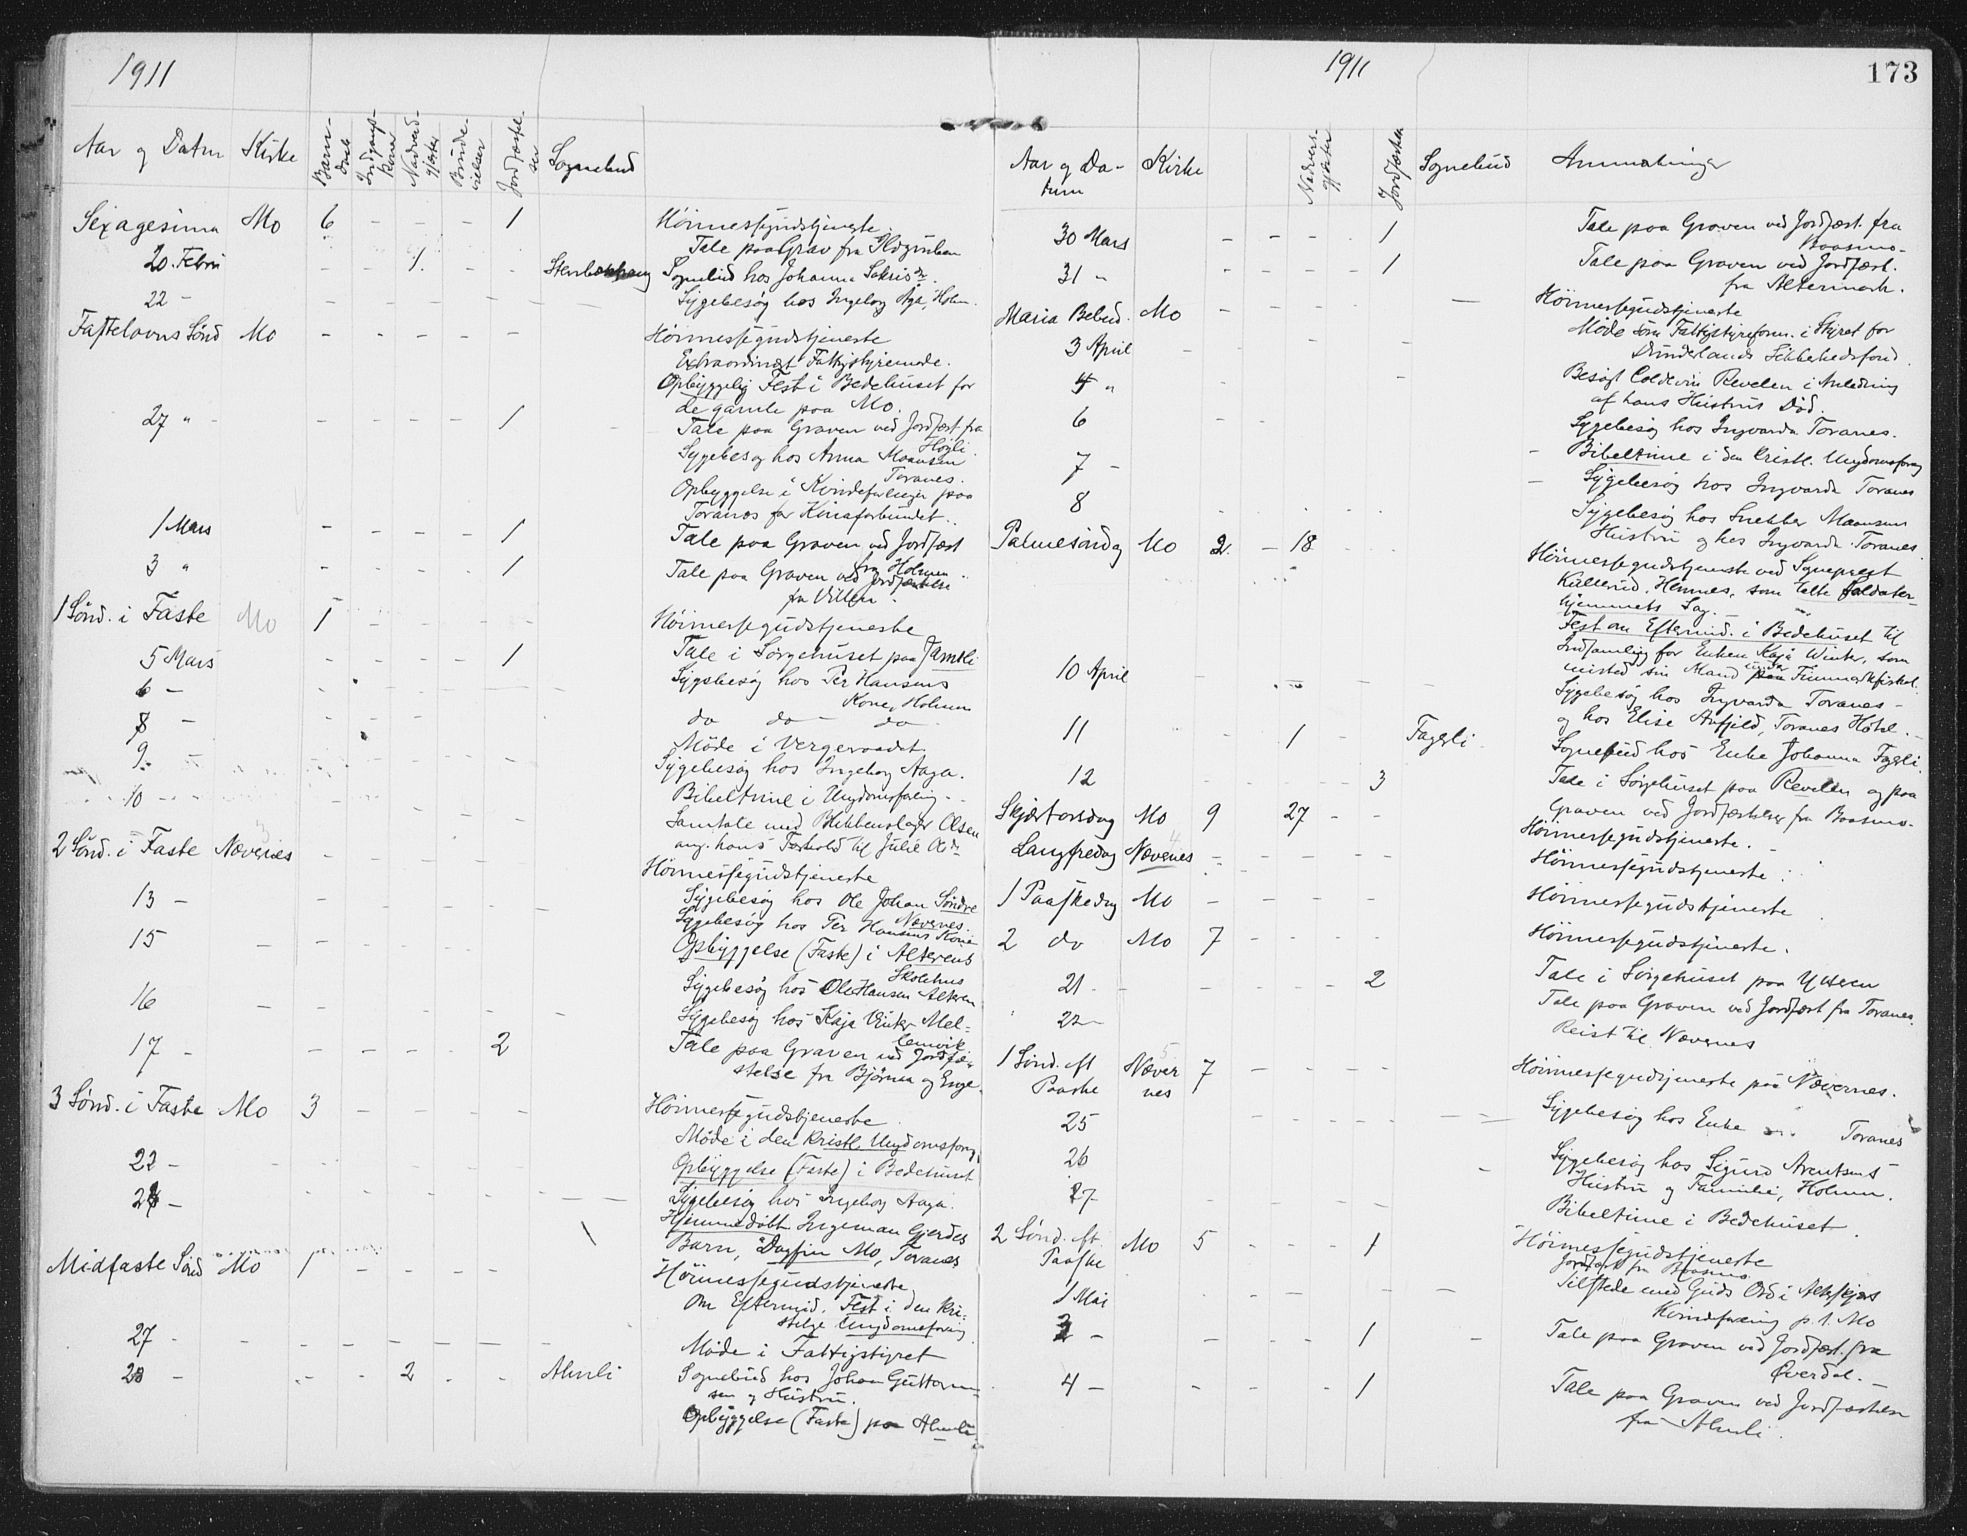 1911
Aar og Datum Kirke Barnedaab Indgangskoner Nadverdgjester Brudevielser Jordfæstelser Sognebud
Sexagesima Mo 6 - - - - 1 Höimessegudstjeneste
Tale paa Grav fra
20 Febru - 1. - - Sognebud hos Johanna
22 - - - - - - Sygebesøg hos Ingeborg Aga, Holm.
Fastelavns Sönd Mo - - - - - Höimessegudstjeneste
Extraordinært Fattigstyremøde.
Opbyggelig Fest i Bedehuset for
de gamle paa Mo.
27 " - - - - - 1 - Tale paa Graven ved Jordfæst fra
Högli.
Sygebesøg hos Anna Maansen
Toranes.
Opbyggelse i Kvindeforeninger paa
Toranes for Kinaforbundet.
1 Mars - - - - 1 Tale paa Graven ved Jordfæst
fra Holmen
3 " - - - - 1 Tale paa Graven ved Jordfæstelse
fra Villen.
1 Sönd. i Faste Mo 1 - - - - Höimessegudstjeneste
5 Mars - - - - 1 Tale i Sørgehuset paa Jamtli
6 - - - - - - Sygebesøg hos Per Hansens
Kone, Holmen
8 - - - - do do do
9. - - - - Møde i Vergeraadet.
Sygebesøg hos Ingeborg Aaga.
10 - - - - - Bibeltime i Ungdomsforening -
Samtale med Blikkenslager Olsen
ang. hans Forhold til Julie
2 Sönd. i Faste Nævernes - - - - Höimessegudstjeneste
13 - - - - - - Sygebesøg hos Ole Johan Söndre
Nævernes.
Sygebesøg hos Per Hansens Kone
15 - - - - - Opbyggelse (Faste) i Alterens
Skolehus
Sygebesøg hos Ole Hansen Alteren
16 - - - - - Sygebesøg hos Kaja Winter Mel-
lemvik
17 - - - - - 2 Tale paa Graven ved Jordfæ-
stelse fra Bjørnaa og Enge.
3 Sönd. i Faste Mo 3 - - - - Höimessegudstjeneste
Møde i den Kristl. Ungdomsforng.
22 - - - - - Opbyggelse (Faste) i Bedehuset
24 - - - - - - Sygebesøg hos Ingeborg Aaga.
Hjemmedöbt Ingeman Gjerdes
Barn, Dagfin Mo, Toranes
Midfaste Sönd Mo 1 - - - - Höimessegudstjeneste
om Eftermid. Fest i den Kri-
stelige Ungdomsforening
27 - - - - - - Møde i Fattigstyret
28 - - - 2 - - Almli Sognebud hos Johan Guttorm-
sen og Hustru.
Opbyggelse (Faste) paa Almli.
1911
173
Aar og Da-
tum Kirke Nadverdgjester Jordfæstelser Sognebud Anmærkninger
30 Mars - - - - 1 Tale paa Graven ved Jordfæst. fra
Baasmo.
31 " - - - - 1 Tale paa Graven ved Jordfæst.
fra Altermark.
Maria Bebud. Mo - - - - Höimessegudstjeneste
3 April - - - - Møde som Fattigstyreform. i Styret for
Dunderlands Sikkerhedsfond.
4 " - - Besøgt Coldevin Revelen i Anledning
af hans Hustrus Död.
6 - - Sygebesøg hos Ingvarda Toranes.
7 - - Bibeltime i den Cristl. Ungdomsforng
8 - Sygebesøg hos Ingvarda Toranes
Sygebesøg hos Snekker Maansens
Hustru og hos Ingvarda Toranes.
Palmesöndag Mo 2 - 18 - Höimessegudstjeneste ved Sogneprest
Kullerud, Hemnes, som talte Soldater-
hjemmets Sag.
Fest om Eftermid. i Bedehuset til
Indsamling for Enken Kaja Winter, som
misted sin Mand under Finmarkfisket.
10 April - - - - Sygebesøg hos Ingvarda Toranes -
og hos Elise Arfjeld, Toranes Hotel.
11 - 1 - Fagerli Sognebud hos Enke Johanna Fagerli.
12 - - - 3 Tale i Sørgehuset paa Revelen og paa
Graven ved Jordfæstelser fra Baasmo.
Skjærtorsdag Mo 9 27 - - Höimessegudstjeneste.
Langfredag Nævernes - - - - Höimessegudstjeneste.
1 Paaskedag Mo - - - - Höimessegudstjeneste
2 do Mo 7 - - - - Höimessegudstjeneste.
21 - - - - - 2 Tale i Sørgehuset paa Ytteren
Tale paa Graven ved Jordfæst fra Toranes.
22 - Reist til Nævernes
1 Sönd. eft
Paaske Næver
nes 7 - - - - Höimessegudstjeneste paa Nævernes.
25 - - - - Sygebesøg hos Enke Toranes
26 - Sygebesøg hos Sigurd Arentsens
Hustru og Familie, Holmen.
27 - - - - Bibeltime i Bedehuset.
2 Sönd. eft
Paaske Mo 5 - - - 1 - Höimessegudstjeneste
Jordfæst fra Baasmo.
1 Mai - - - - Tilstede med Guds Ord i
Kvindeforening p. t. Mo
2 - - - - 1 - Tale paa Graven ved Jordfæst. fra
Överdal.
4 - - - - 1 Tale paa Graven ved Jordfæstelse
fra Almli.